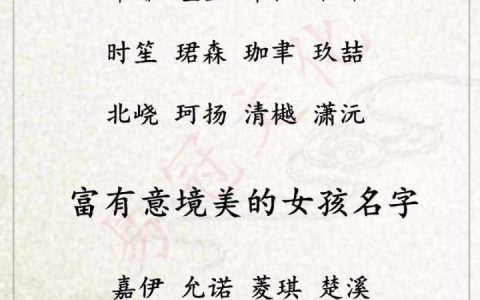 时笙 珺森 珈聿 玖喆
北峣 珂扬 清樾 潇沅
富有意境美的女孩名字
嘉伊 允诺 菱琪 楚溪